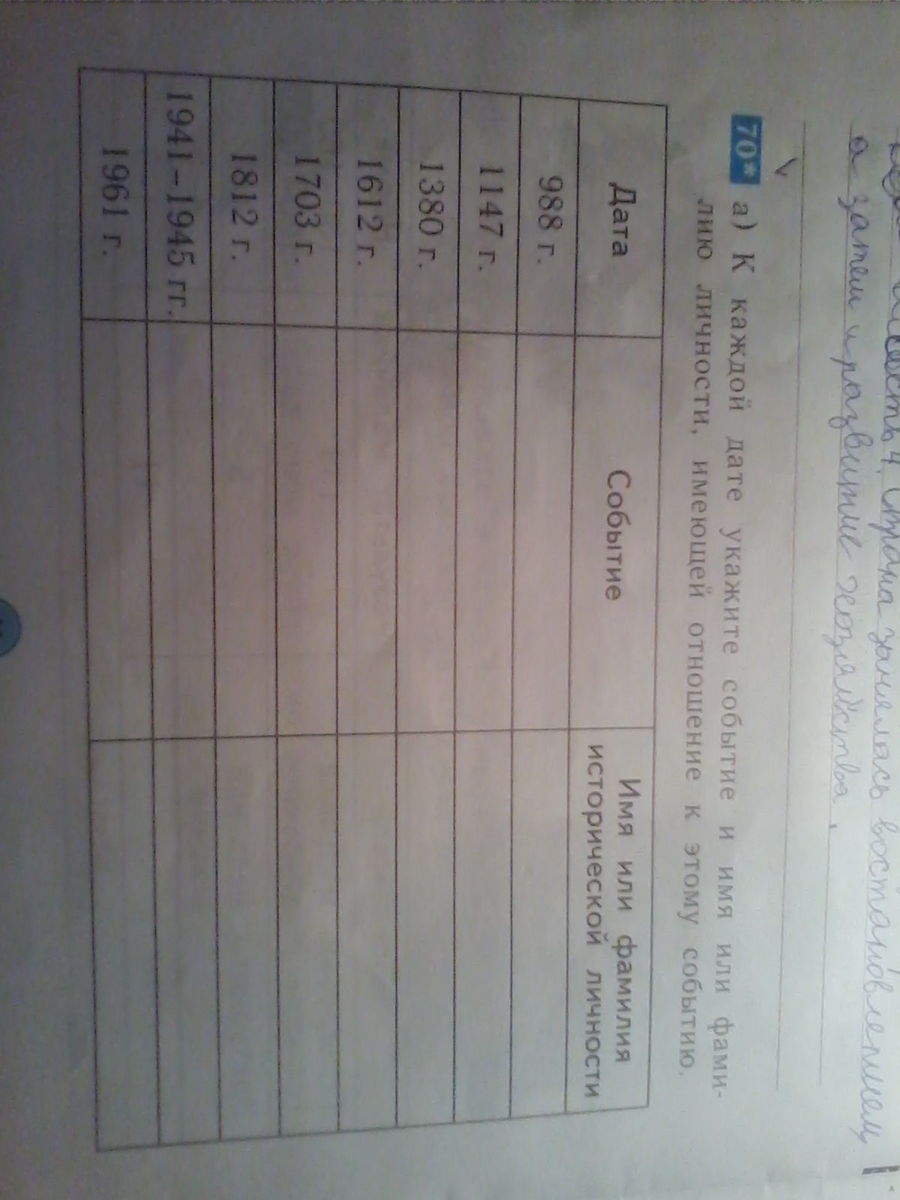 страна занялась востановлением
а затем и развитие хозяйства.
70* а) К каждой дате укажите событие и имя или фами-
лию личности, имеющей отношение к этому событию.
Дата Событие Имя или фамилия
исторической личности
988 г.
1147 г.
1380 г.
1612 г.
1703 г.
1812 г.
1941–1945 гг.
1961 г.